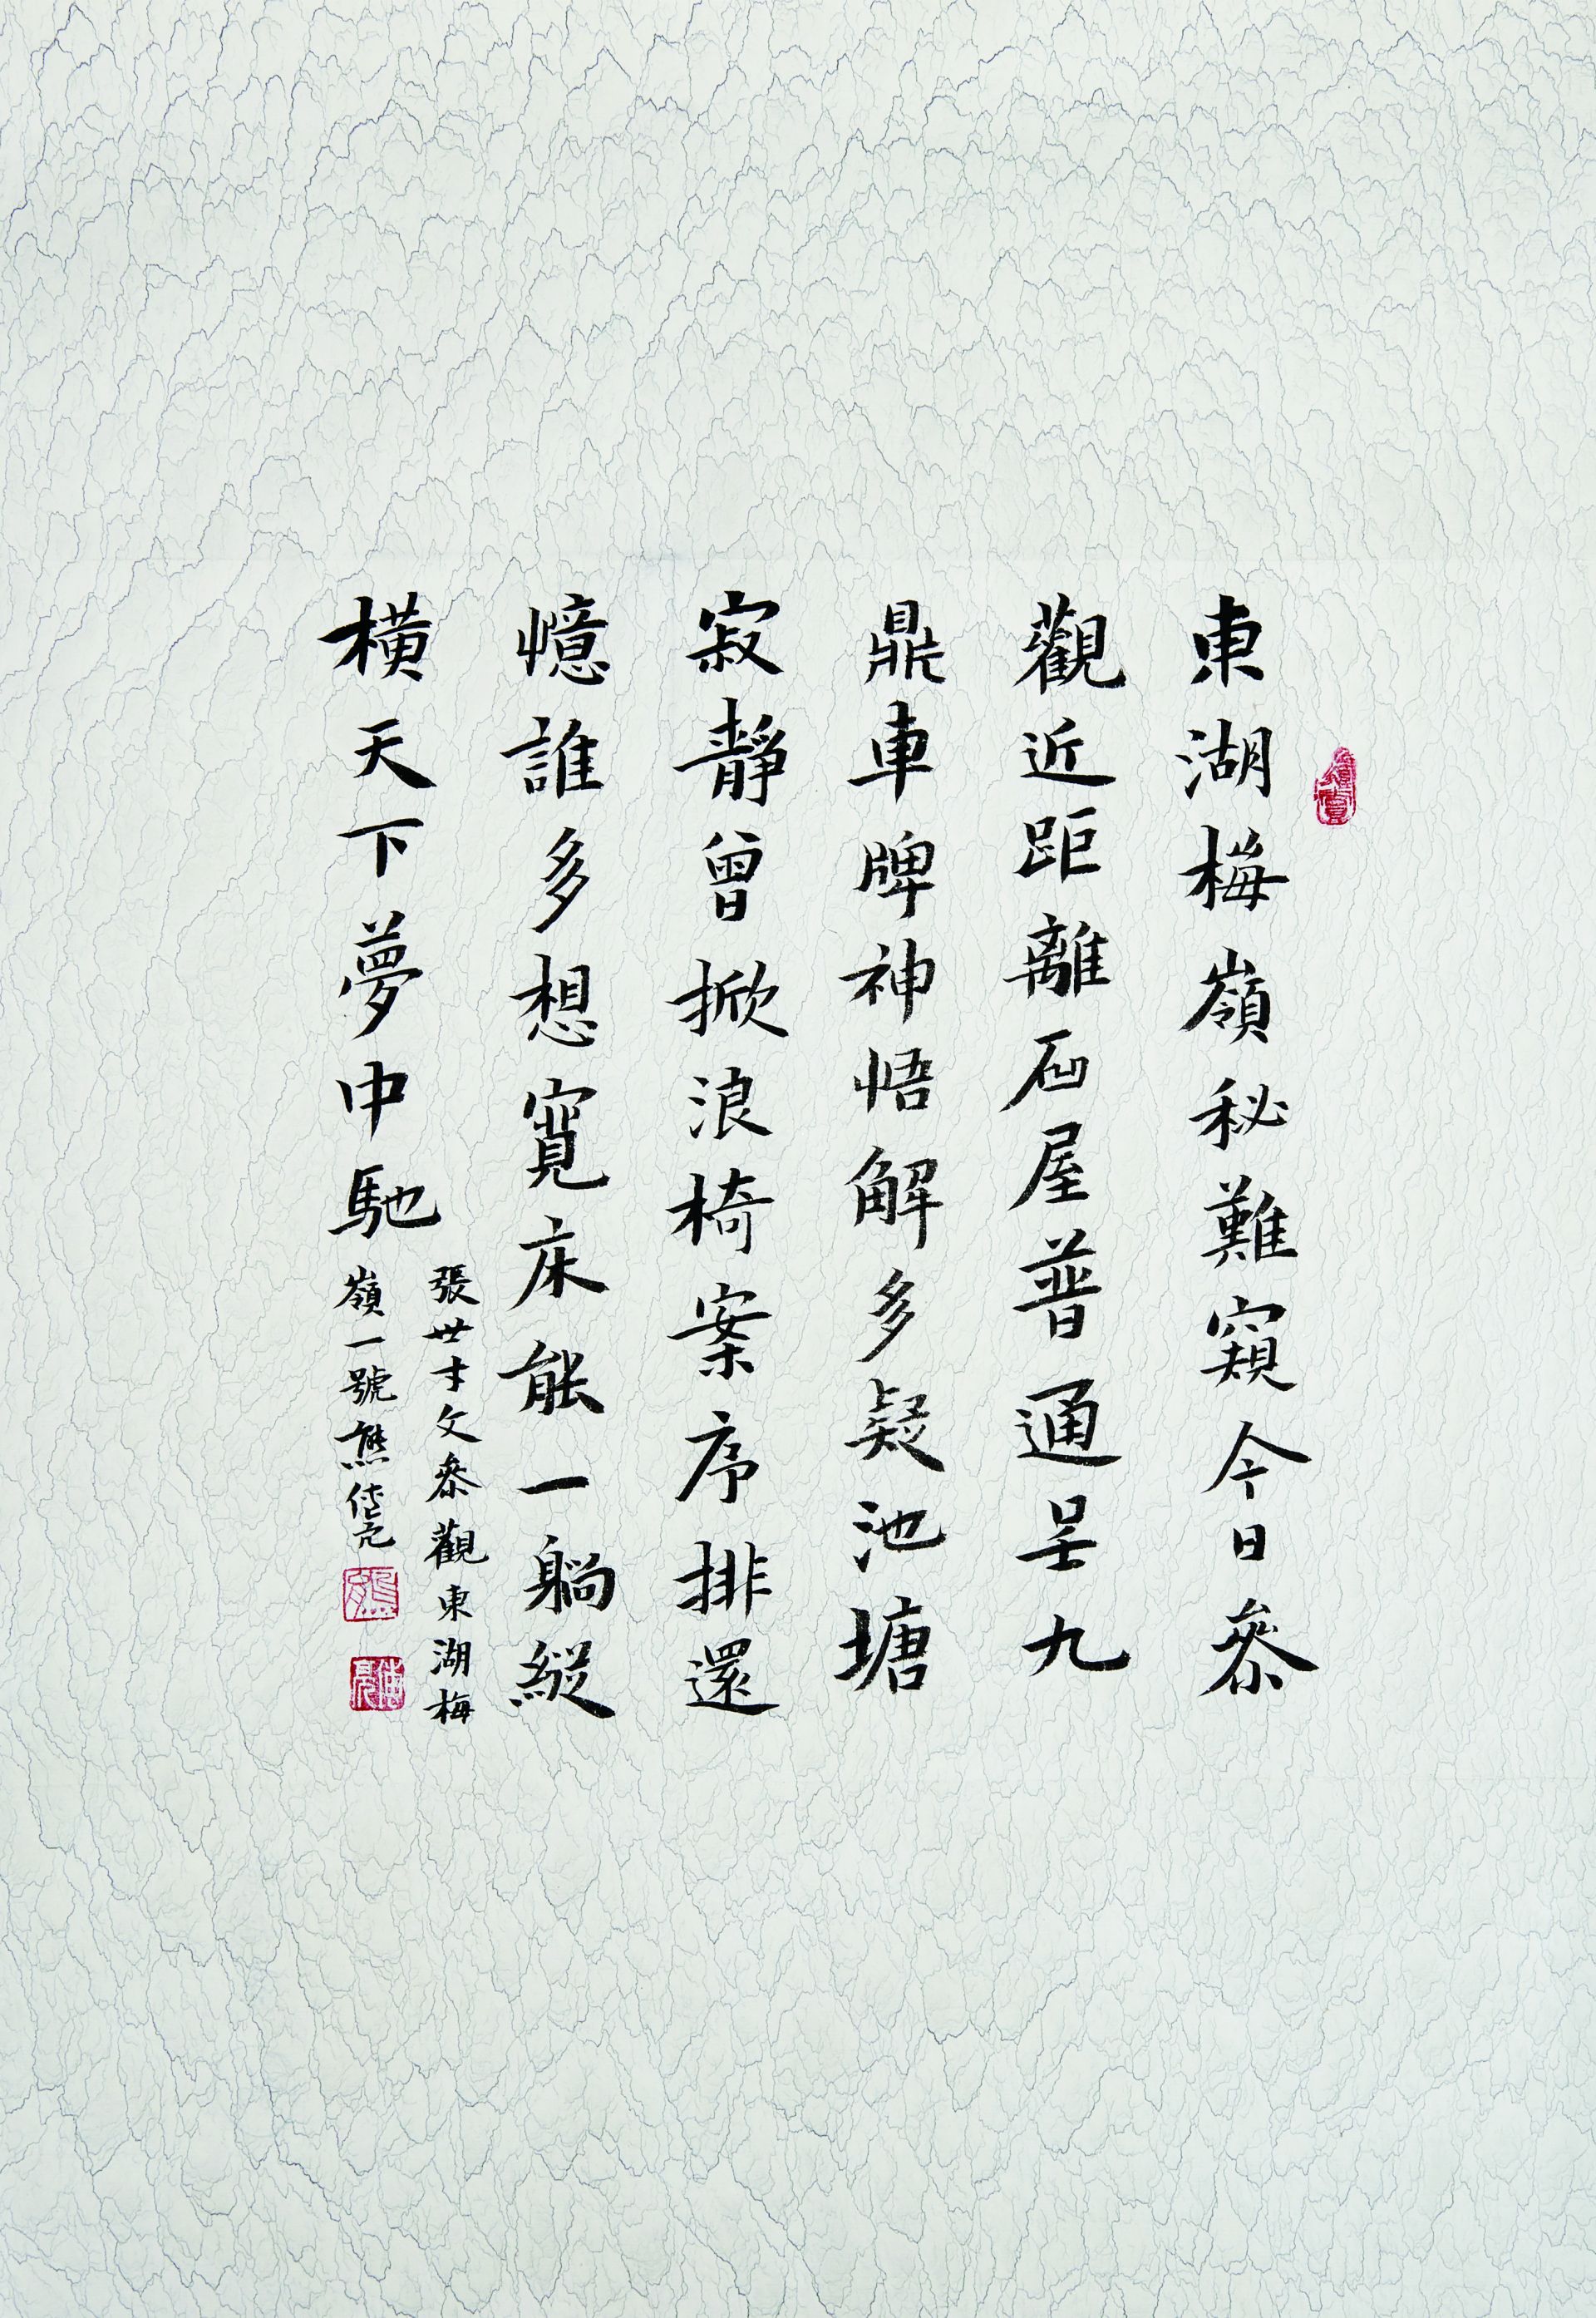 東湖梅嶺秘難窺今日叅
觀近距離石屋普通呈九
鼎車牌神悟解多疑池塘
寂靜曾掀浪椅案序排還
憶誰多想寬床能一躺縱
橫天下夢中馳
張世才文叅觀東湖梅
嶺一號熊亮
熊